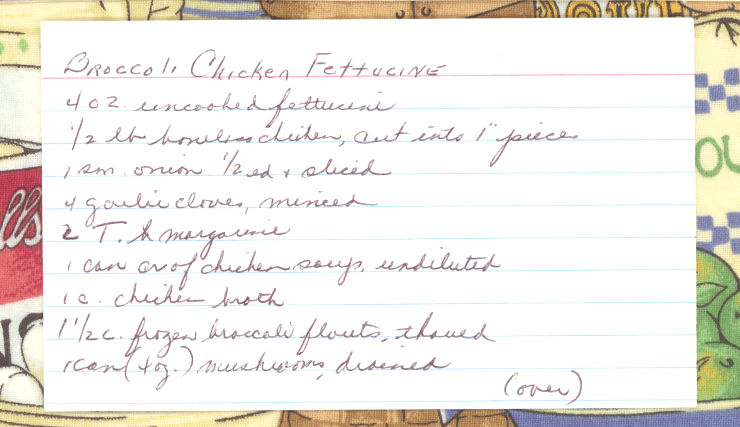 Broccoli Chicken Fettucine
4 oz. uncooked fettucini
1/2 lb boneless chicken, cut into 1" pieces
1 sm. onion 1/2ed + sliced
4 garlic cloves, minced
2 T. margarine
1 can cr of chicken soup, undiluted
1 c. chicken broth
1 1/2 c. frozen broccoli florets, thawed
1 can (4 oz.) mushrooms, drained
(over)